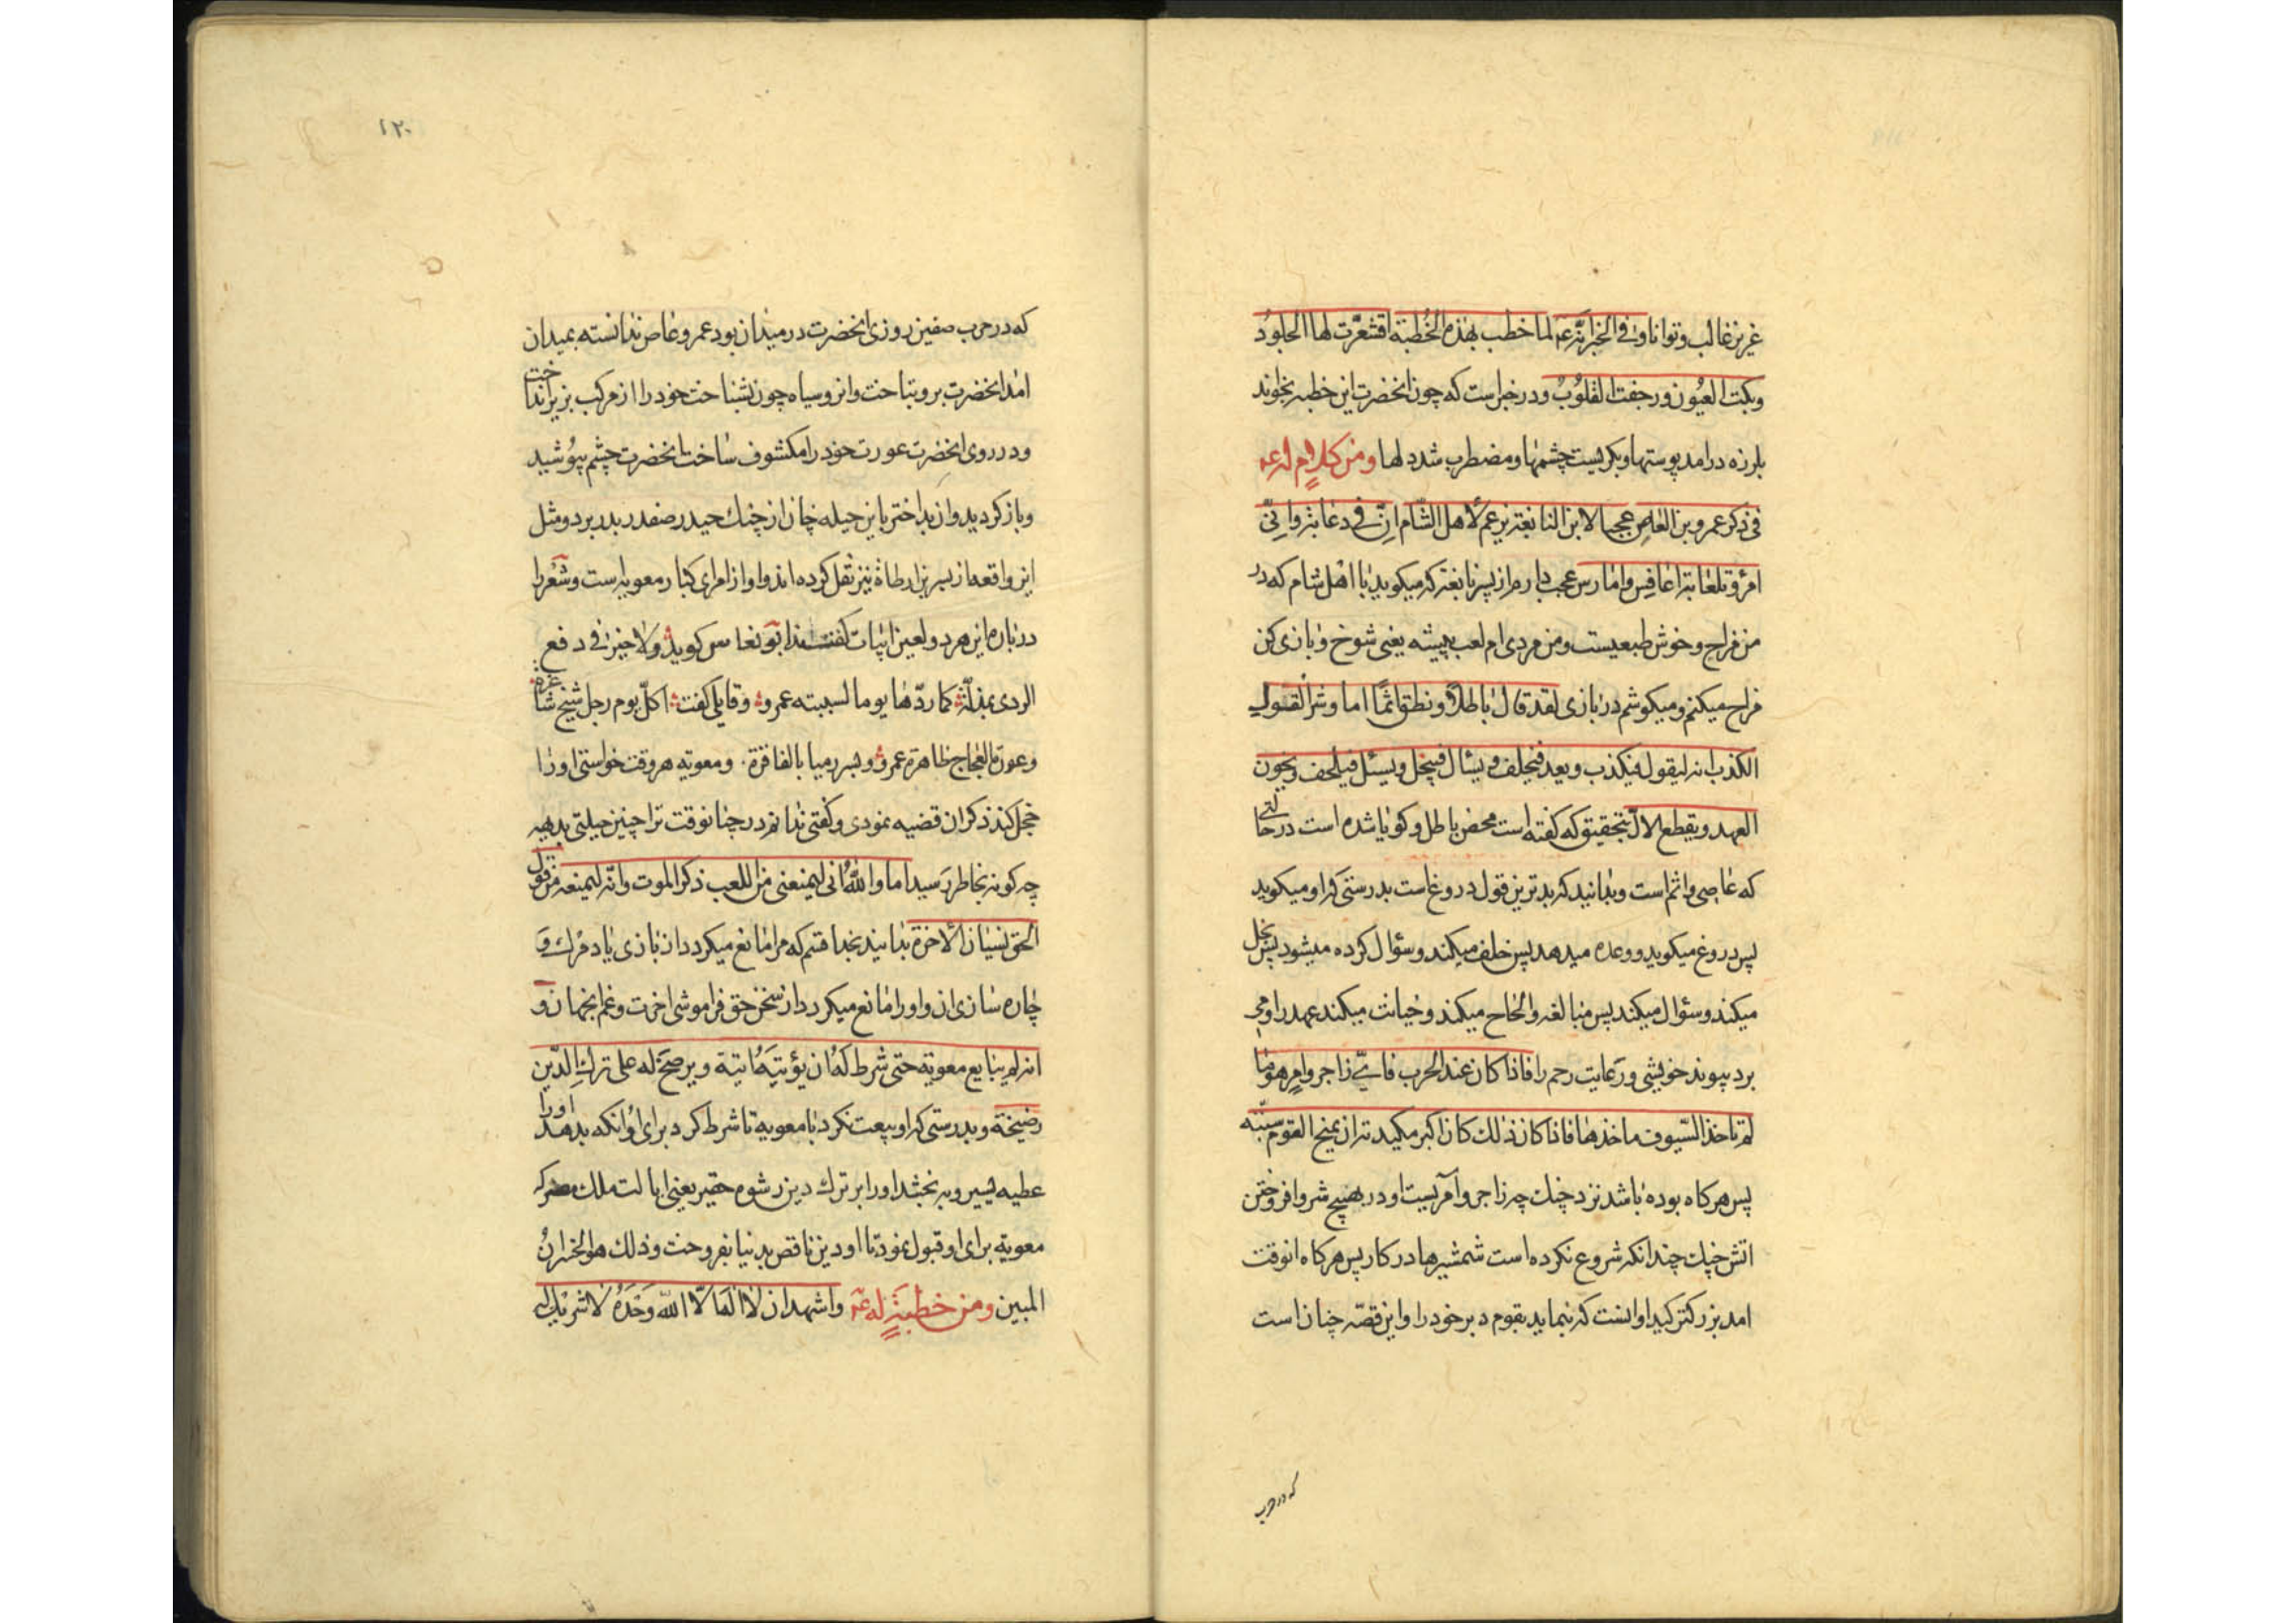 عزیز غالب و توانا و فی الخبر انّه عم لما خطب بهذه الخُطبة اقشعرّت لها الجلوُد
وبکت العیُون و رجفت القلوُبُ و در خبر است که چون انحضرت این خطبه بخواند
بلرزه درامد پوستها و بکریست چشمها و مضطرب شد دلها ومن کلامٍ له عم
فی ذکر عمرو بن العاص عجبا لابن النابغة یزعم لاهل الشّام انّ فی دعابة و انّی
امرؤ تلعابة اعافس و امارس عجب دارم از پسر نابغه که میکوید با اهل شام که در
من مزاح و خوش طبعیست و من مردی ام لعب پیشه یعنی شوخ و بازی کن
مزاح میکنم و میکوشم در بازی لقد قال باطلا و نطق اثمًا اما و شرّ القول
الکذب انه لیقول فیکذب و یعد فیخلف و یسئال فیبخل و یسئل فیلحف و یخون
العهد و یقطع الالّ بتحقیق که کفته است محض باطل و کویا شده است در حالتی
که عاصی و اثم است و بدانید که بدترین قول دروغ است بدرستی که او میکوید
پس دروغ میکوید و وعده میدهد پس خلف میکند و سؤال کرده میشود پس بخل
میکند و سؤال میکند پس مبالغه و الحاح میکند و خیانت میکند عهد را و می
برد پیوند خویشی و رعایت رحم را فاذا کان عند الحرب فایّ زاجر و امر هو ما
لم تاخذ السّیوف ماخذها فاذا کان ذلك کان اکبر مکیدته ان یمنح القوم سبّته
پس هرکاه بوده باشد نزد جنك چه زاجر و آمریست او در بهیج شر و افروختن
اتش جنك چندانکه شروع نکرده است شمشیرها در کار پس هرکاه انوقت
امد بزرکتر کید او انست که بنماید بقوم دبر خود را و این قصّه چنان است
که در حرب
۱۲۰
که در حرب صفین روزی انحضرت در میدان بود عمرو عاص ندانسته بمیدان
امد انحضرت بر وی تاخت و ان روسیاه چون بشناخت خود را از مرکب بزیر انداخت
و در روی انحضرت عورت خود را مکشوف ساخت انحضرت چشم پپوُشید
و باز کردید و ان بداختر باین حیله جان از چنك حیدر صفدر بدر برد و مثل
این واقعه از بسر بن ارطاة نیز نقل کرده اند و او از امرای کبار معویه است و شعرا
در باره این هردو لعین ابیات کفته‌اند ابو نغاس کوید ولا خیر فی دفع
الردی بمذلّة کما ردّها یوما لسببته عمرو و قایلی کفت اکلّ یوم رجل شیخ شاغره
و عورة العجاج ظاهرة عمرو و بسر رمیا بالفاقرة. و معویه هروقت خواستی او را
خجل کند ذکر ان قضیه نمودی و کفتی ندانم در چنان وقت ترا چنین حیلتی بدیهه
چه کونه بخاطر رسید اما و اللّه انی لیمنعنی من اللعب ذکر الموت و انّه لیمنعه من قول
الحق نسیان الاخرة بدانید بخدا قسم که مرا مانع میکردد از بازی یاد مرك و
چاره سازی ان و او را مانع میکردد از سخن حق فراموشی اخرت و غم انجهان و
انه لم یبایع معویة حتی شرط لهُ ان یؤتیَهُ اتیة و یرضخ له علی ترك الدّین
رضیخة و بدرستی که او بیعت نکرد با معویه تا شرط کرد برای او انکه بدهد او را
عطیه یسیر و به بخشد او را بر ترك دین رشوه حقیر یعنی ایالت ملك مصر که
معویه برای او قبول نمود تا او دین ناقص بدنیا بفروخت و ذلك هو الخسرانُ
المبین ومن خطبةٍ له عم و اشهد ان لا اله الّا اللّه وَحْدَهُ لاشریك له